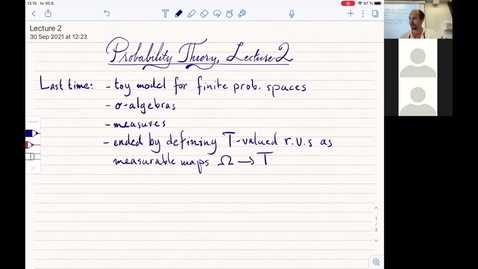 13.15 to 30.9.
97 %
Lecture 2
30 Sep 2021 at 12:23
Probability Theory, Lecture 2
Last time: - toy model for finite prob. spaces
- σ-algebras
- measures
- ended by defining T-valued r.v.s as
measurable maps Ω → T